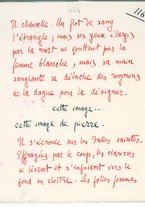 116
Il chancelle. Un flot de sang
l'étrangle ; mais ses yeux élargis
par la mort ne quittent pas la
femme blanche, mais sa main
sanglante se détache des rognons
de la dague pour la désigner.
cette image...
cette image de pierre.
Il s'écroule sur les dalles saintes.
Effrayées par le coup, les chauves
se lèvent et s'enfuient vers le
fond du cloître. Les folles femmes